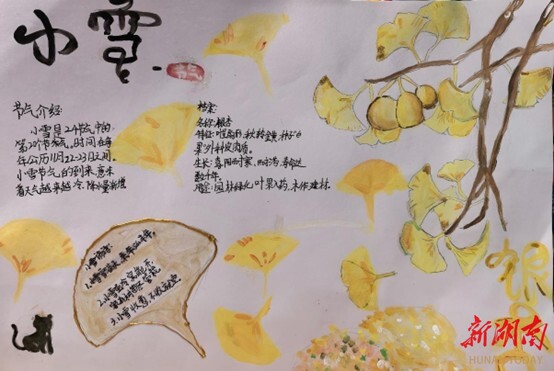 小雪
节气
节气介绍
小雪是24节气中的
第20个节气,时间在每
年公历11月22-23日之间。
小雪节气的到来,意味
着天气越来越冷、降水量渐增
档案:
名称:银杏
特征:叶呈扇形,秋转金黄,种子白
果外种皮肉质。
生长:喜阳耐寒
数千年。
用途:园林绿化,叶果入药,木作建材。
小雪谚语:
1.小雪雪满天,来年必丰年。
3.小雪
银
新湖南
HUNAN TODAY